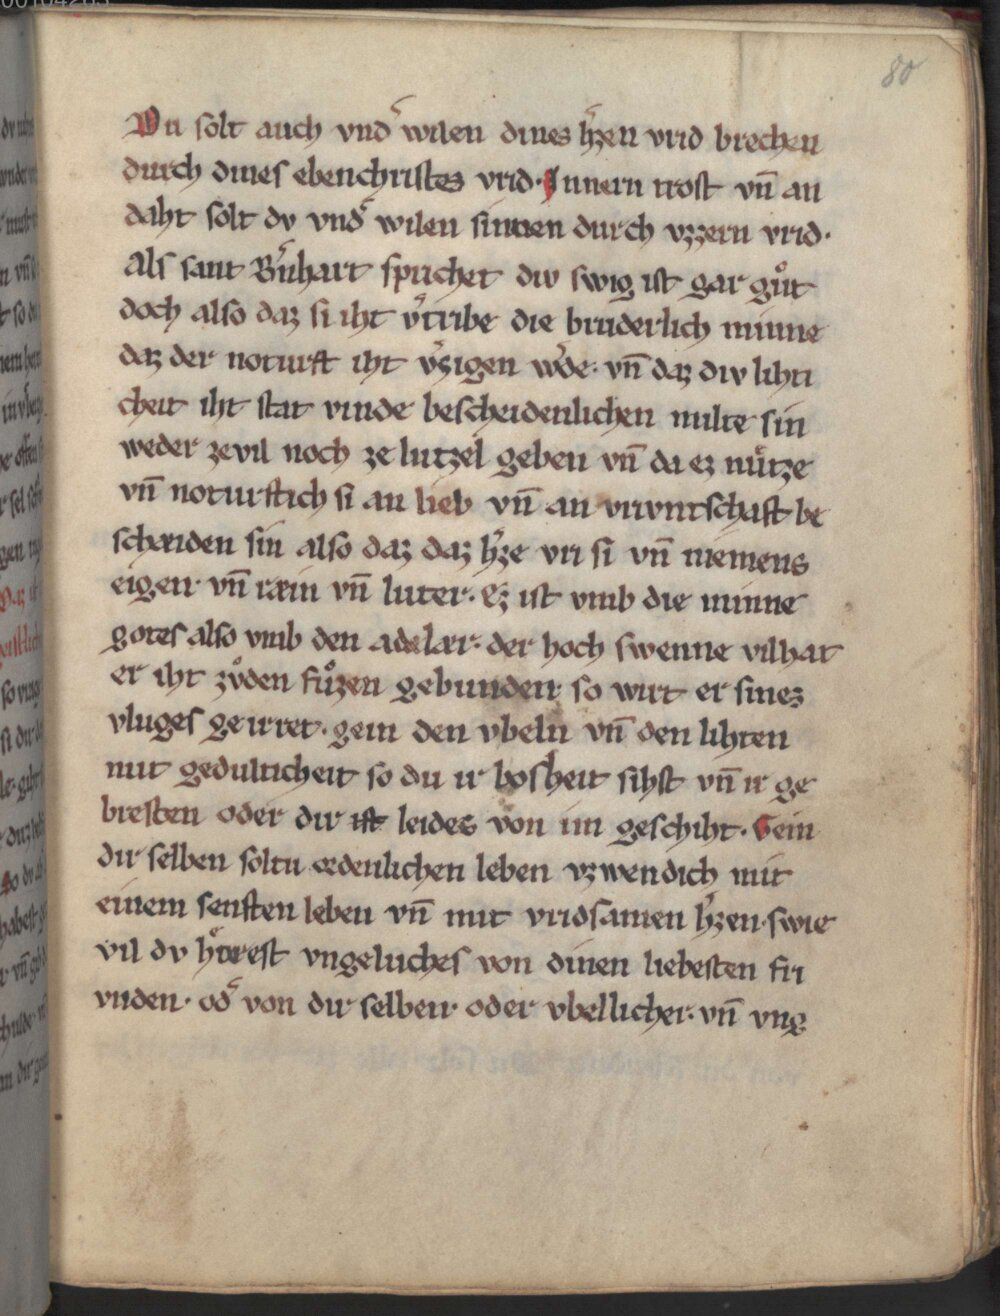 80
Du solt auch vnd͛ wilen dines h͛zen vrid brechen
durch dines ebenchristes vrid. Innern trost vn̄ an
daht solt dv vnd͛ wilen sinnen durch vzzern vrid.
Als sant B͛nhart sprichet div swig ist gar gůt
doch also daz si iht v͛tribe die bruderlich minne
daz der noturft iht v͛zigen w͛de. vn̄ daz div lihti
cheit iht stat vinde bescheidenlichen milte sin
weder ze vil noch ze lutzel geben vn̄ da ez nůtze
vn̄ noturftich si an lieb vn̄ an vrivntschaft be
scheiden sin also daz daz h͛ze vri si vn̄ niemens
eigen. vn̄ rein vn̄ luter. Ez ist vmb die minne
gotes also vmb den adelar. der hoch swenne vil hat
er iht zů den fůzen gebunden so wirt er sines
vluges geirret. gein den vbeln vn̄ den lihten
mit gedulticheit so du ir bosheit sihst vn̄ ir ge
bresten oder dir ist leides von im geschiht. Gein
dir selben soltu ordenlichen leben vzwendich mit
einem senften leben vn̄ mit vridsamen h͛zen. swie
vil dv hörest vngeluches von dinen liebesten fri
vnden. od͛ von dir selben. oder vbellicher. vn̄ vng